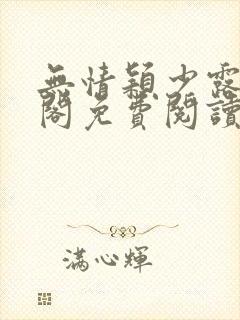 無情穎少露
閣免費閱讀
滿心輝